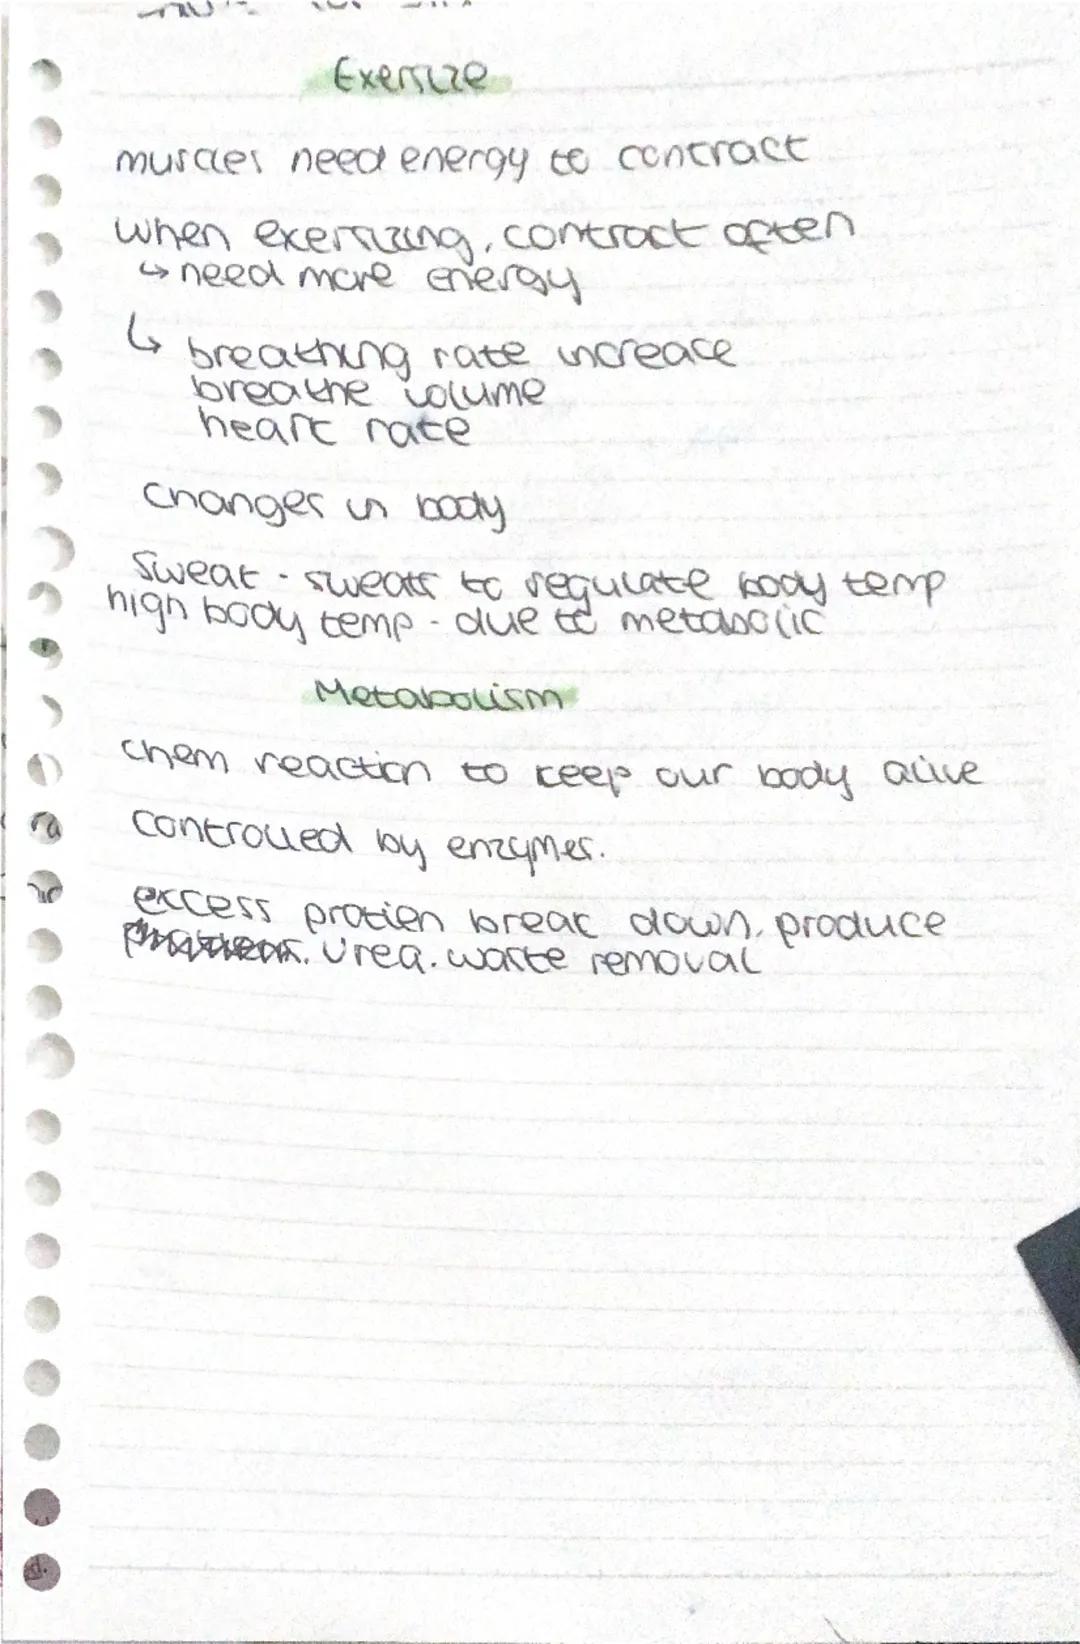 Exersize
muscles need energy to contract
when exersizing, contract often
↳ need more energy
↳ breathing rate increace
breathe volume
heart rate
changes in body
Sweat - sweats to regulate body temp
high body temp - due to metabolic
Metabolism
chem reaction to keep our body alive
controlled by enzymes.
excess protien break down, produce
urea. waste removal